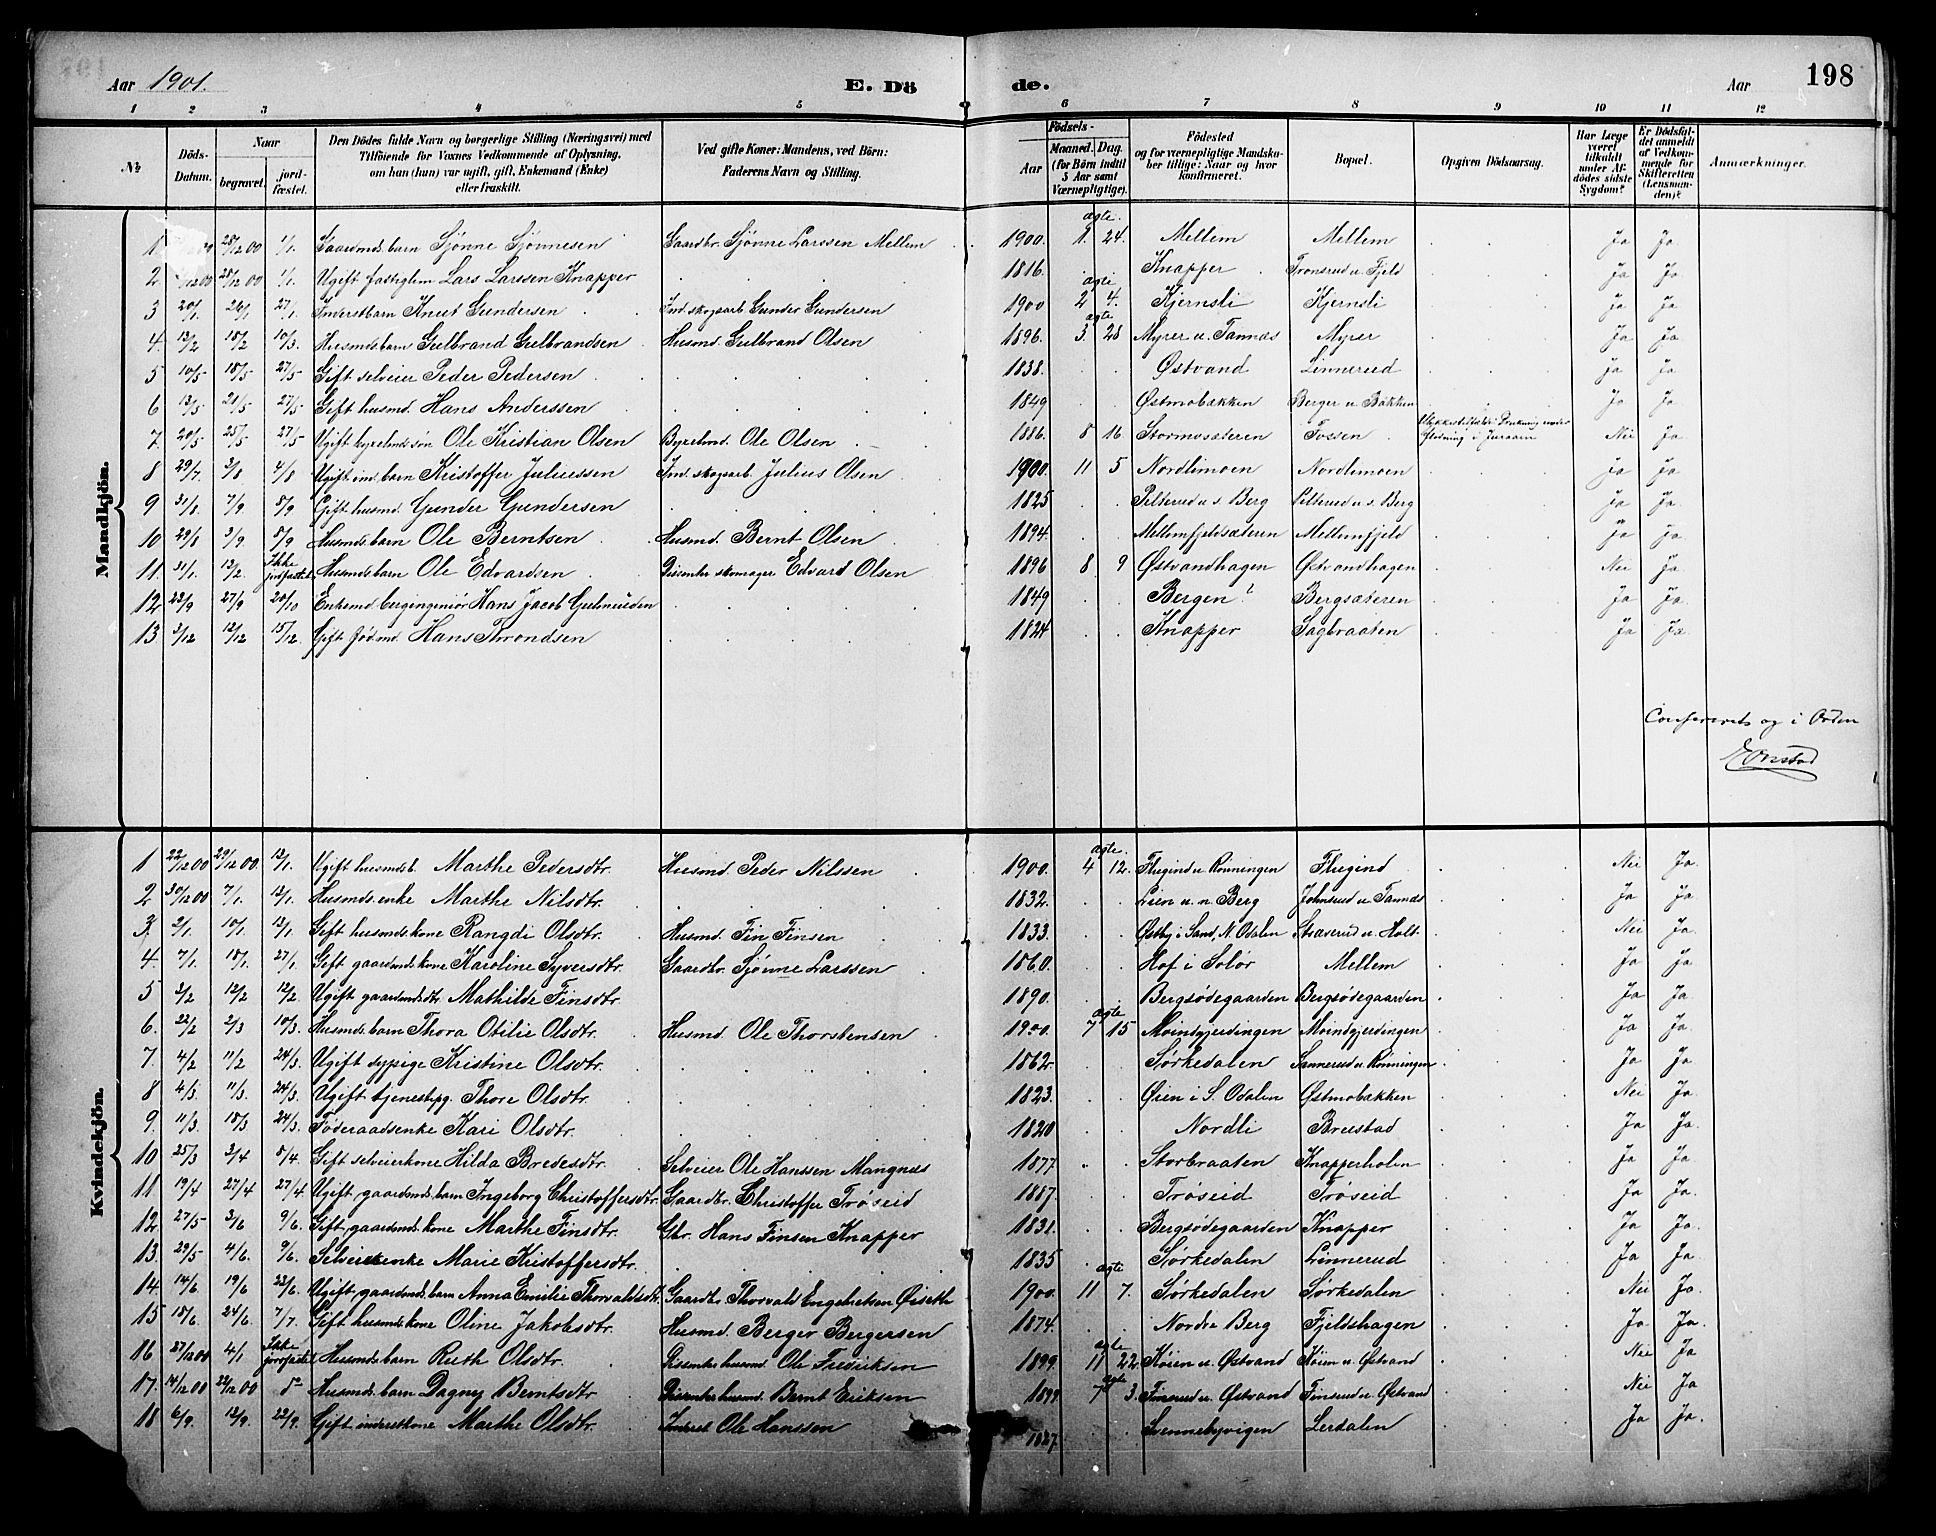 Aar 1901. E. Dö de. Aar 198
1 2 3 4 5 6 7 8 9 10 11 12
№ Döds-Datum. Naar begravet. jordfæstet. Den Dödes fulde Navn og borgerlige Stilling (Næringsvei) med Tilföiende for Voxnes Vedkommende af Oplysning, om han (hun) var ugift, gift, Enkemand (Enke) eller fraskilt. Ved gifte Koner: Mandens, ved Börn: Faderens Navn og Stilling. Födsels- Aar Maaned. Dag. (for Börn indtil 5 Aar samt Værnepligtige). Födested og for værnepligtige Mandskaber tillige: Naar og hvor konfirmeret. Bopæl. Opgiven Dödsaarsag. Har Læge været tilkaldt under Afdödes sidste Sygdom? Er Dödsfaldet anmeldt af Vedkommende for Skifteretten (Lensmanden)? Anmærkninger.
Mandkjön.
1. 28/12 00 1/1. Gaardmds. barn Sjönne Sjönnesen Gaardbr. Sjönne Larssen Mellem 1900. ægte. 1. 24. Mellem Mellem Ja Ja
2 /12 00 28/12 00 1/1. Ugift fattiglem Lars Larssen Knapper 1816. Knapper Tronsrud u. Fjeld Ja Ja
3 20/1 26/1 27/1. Inderstbarn Knut Gundersen Ind. skogsarb Gunder Gundersen 1900 ægte 2 4. Kjernsli Kjernsli Ja Ja
4. 13/2 18/2 10/3. Husmds. barn Gulbrand Gulbrandsen Husmd Gulbrand Olsen 1896. ægte 3. 28 Myrer u. Tannæs Myrer Ja Ja
5 10/5 18/5 27/5 Gift selveier Peder Pedersen 1838. Østvand Linnerud Ja Ja
6 13/5 21/5 27/5 Gift husmd. Hans Anderssen 1849 Østmobækken Berger u. Bakken Ja Ja
7. 20/5 25/5 27/5 Ugift byxelmds. sön Ole Kristian Olsen Byxelmd. Ole Olsen 1886. 8 16 Stormosæteren Fossen Ulykkestilfælde: Drukning under flödning i Juraaen Nei Ja
8 29/7 3/8 4/8 Ugift ind. barn Kristoffer Juliussen Ind. skogsarb Julius Olsen 1900. 11 5 Nordlimoen Nordlimoen Ja Ja
9 31/8 7/9 8/9 Gift husmd. Gunder Gundersen 1825 Pelterud u. s. Berg Pelterud u. s. Berg Ja Ja
10 29/8 3/9. 8/9 Husmds. barn Ole Berntsen Husmd. Bernt Olsen 1894. Mellemfjeldsæteren Mellemfjeld Ja Ja
11. 31/1. 12/2. Ikke jordfæstet Husmds. barn Ole Edvardsen Dissenter skomager Edvard Olsen 1896 8 9 Østvandhagen Østvandhagen Nei Ja
12 23/9 27/9 20/10 Enkemd. bergingeniör Hans Jacob Gulmunden 1849 Bergen? Bergsæteren Ja Ja
13. 3/12 12/12 15/12. Gift föd.md. Hans Throndsen 1824 Knapper Sagbraaten Ja Ja
Confereret og i Orden
EOnstad
Kvindekjön.
1 22/12 00 29/12 00. 13/1. Ugift husmds b. Marthe Pedersdtr. Husmd. Peder Nilssen 1900. ægte. 4 12. Flugind u. Rönningen Flugind Nei Ja
2 30/12 00 7/1. 13/1. Husmds. enke Marthe Nilsdtr. 1832. Lien u. n. Berg Johnsrud u. Tannæs Ja Ja
3. 2/1. 10/1. 13/1. Gift husmds. kone Rangdi Olsdtr. Husmd. Fin Finsen 1833. Østby i Sand, N. Odalen Stræserud u. Holt Nei Ja.
4. 7/1. 18/1. 27/1. Gift gaardmds. kone Karoline Syversdtr. Gaardbr. Sjönne Larssen 1860. Hof i Solör Mellem Ja Ja
5 3/2 12/2 12/2 Ugift gaardmds. dtr. Mathilde Finsdtr. 1890. Bergsödegaarden Bergsödegaarden Ja Ja
6. 22/2 2/3 10/3. Husmds. barn Thora Otilie Olsdtr. Husmd Ole Thorstensen 1900. ægte 7 15 Moindgjerdingen Moindgjerdingen Ja Ja
7. 4/2 11/2 24/3 Ugift sypige Kristine Olsdtr. 1862. Sörkedalen Sannerud u. Rönningen Ja Ja
8 4/3 11/3. 24/3. Ugift tjenestepg. Thore Olsdtr. 1823. Øien i S. Odalen Østmobækken Nei Ja.
9. 11/3. 18/3 24/3. Föderaadsenke Kari Olsdtr. 1820 Nordli Breistad Ja Ja.
10 25/3 2/4 8/4. Gift selveierkone Hilda Bredesdtr. Selveier Ole Hanssen Mangnæs 1877. Storbraaten Knapperholen Ja Ja.
11. 19/4 27/4 27/4 Ugift gaardmds. barn Ingeborg Christoffersdtr. Gaardbr. Christoffer Tröseid 1887. Tröseid Tröseid Ja Ja.
12. 27/5 3/6 9/6. Gift gaardmds. kone Marthe Finsdtr. Gbr. Hans Finsen Knapper 1831. Bergsödegaarden Knapper Ja Ja.
13. 29/5 4/6. 9/6. Selveierenke Marie Kristoffersdtr. 1835 Sörkedalen Linnerud Ja Ja.
14. 14/6. 19/6 22/6. Ugift gaardmds. barn Anna Emilie Thorvaldsdtr. Gaardbr. Thorvald Engebretsen Øiseth 1900. ægte 11 7. Sörkedalen Sörkedalen Nei Ja.
15 18/6. 24/6 7/7. Gift husmds. kone Oline Jakobsdtr. Husmd Berger Bergersen 1874. Nordre Berg Fjeldshagen Ja Ja.
16 27/12 00 4/1 Ikke jordfæstet Husmds. barn Ruth Olsdtr. Dissenter husmd Ole Fredriksen 1899. ægte 11 22. Köien u. Østvand Köien u. Østvand Nei Ja
17. 14/12 00 22/12 00 do Husmds. barn Dagny Berntsdtr Dissenter husmd Bernt Eriksen 1899 ægte 7 3. Finsrud u. Østvand Finsrud u. Østvand Nei Ja
18 6/9. 12/9. 22/9. Gift inderstkone Marthe Olsdtr. Inderst Ole Hanssen 1827. Svennebyvigen Lerdalen Ja Ja.